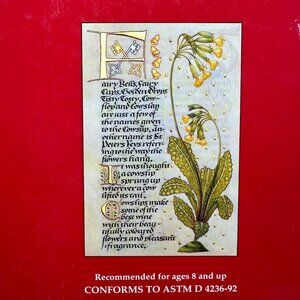 Fairy Bells, Fairy
Cups, Golden Drops
Tisty Tosty, Cow-
flop and Cowslop
are just a few of
the names given
to the Cowslip, an-
other name is St
Peters keys refer-
ring to the way the
flowers hang.
It was thought
a cowslip
sprung up
wherever a cow
lifted its tail
Cowslips make
some of the
best wine
with their beau-
tifully coloured
flowers and pleasant
fragrance.
Recommended for ages 8 and up
CONFORMS TO ASTM D 4236-92